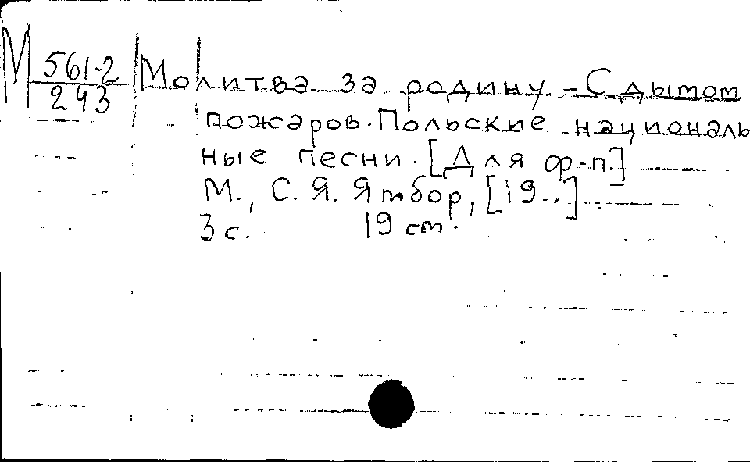 М 561-2 Молитва за родину – С дымом
243 пожаров. Польские националь
ные песни. [Для ф-п.]
М., С. Я. Ямбор, [19..]
3 с. 19 см.